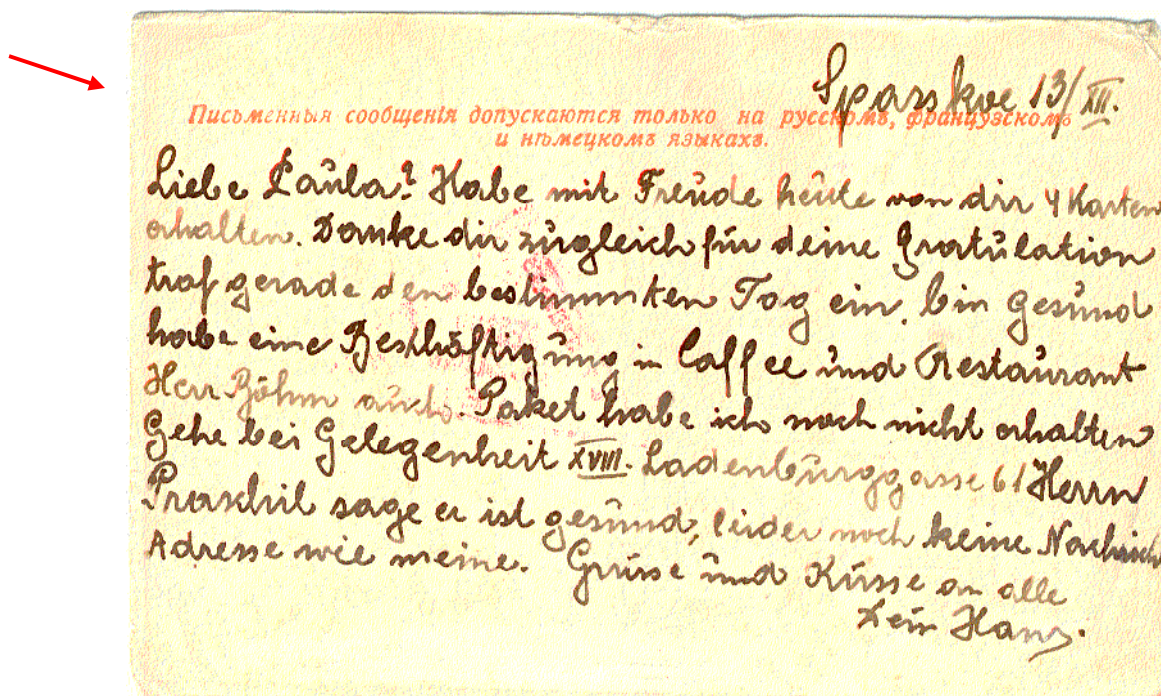 Sparskoe 13/XII.
Письменныя сообщенія допускаются только на русскомъ, французскомъ
и нѣмецкомъ языкахъ.
Liebe Paula! Habe mit Freude heute von dir 4 Karten
erhalten. Danke dir zugleich für deine Gratulation
traf gerade den bestimmten Tag ein, bin gesund
habe eine Beschäftigung in Caffee und Restaurant
Herr Böhm auch. Paket habe ich noch nicht erhalten
Gehe bei Gelegenheit XVIII. Ladenburggasse 61 Herrn
sage er ist gesund, leider noch keine Nachrich
Adresse wie meine. Grüsse und Küsse an alle
Dein Hans.